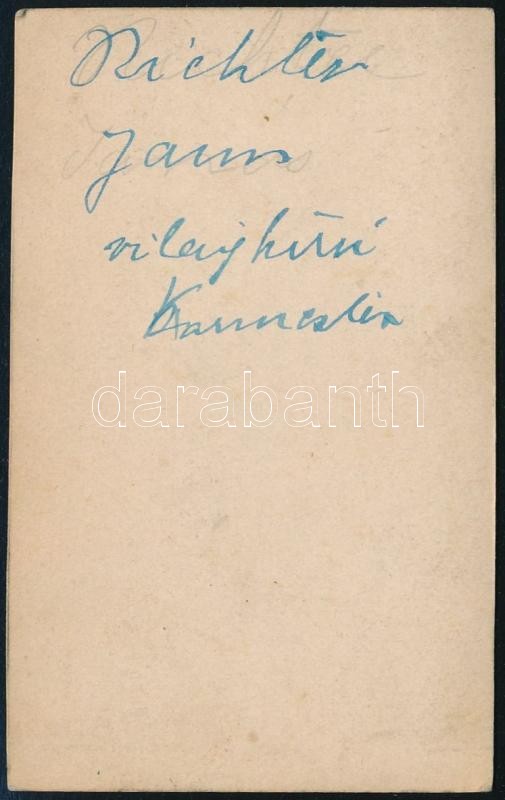 Richter
János
világhírű
Karmester
darabanth